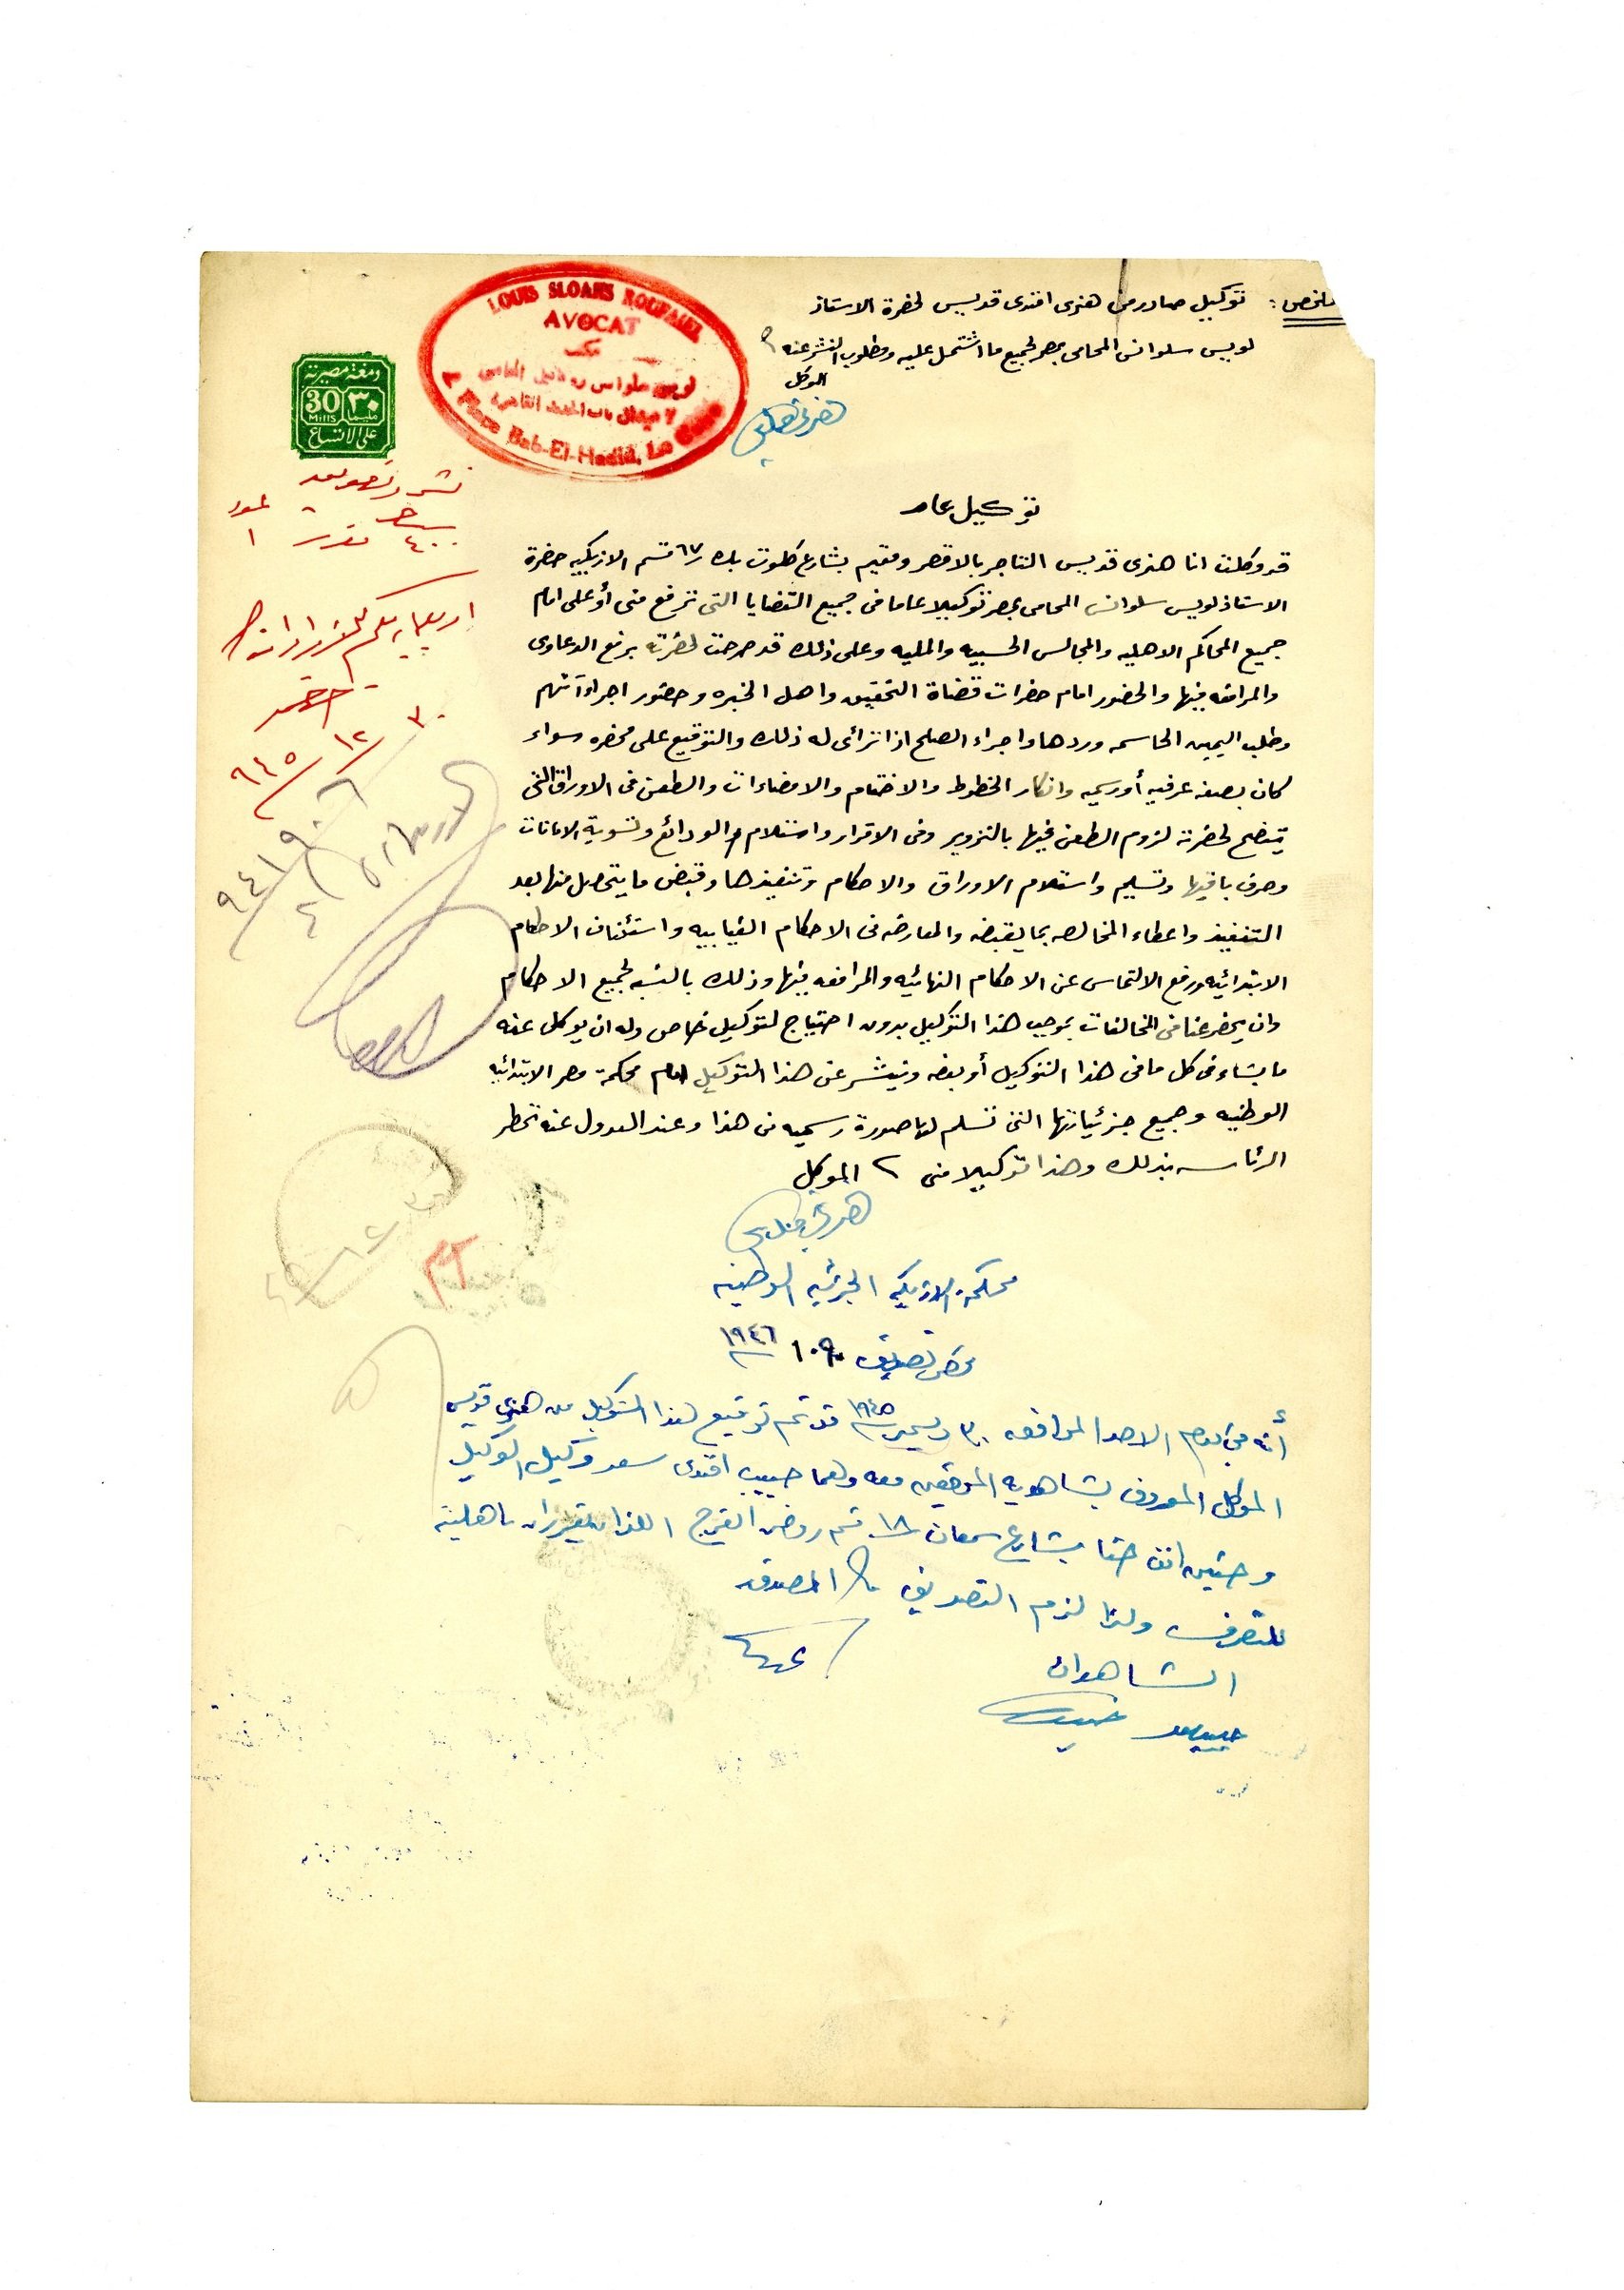 ملخص: توكيل صادر من هنرى افندى قديس لحضرة الاستاذ
لويس سلوانس المحامى بمصر لجميع ما اشتمل عليه ومطلوب النشر عنه
الموكل
LOUIS SLOANS ROUFAIEL
AVOCAT
مكتب
لويس سلوانس روفائيل المحامى
٧ ميدان باب الحديد القاهرة
Place Bab-El-Hadid, Le Caire
دمغة مصرية
30 ٣٠
Mills مليما
على الاتساع
نشر وتصديق
٤٠٠
٣٠/١٢/٩٤٥
توكيل عام
قد وكلت انا هنرى قديس التاجر بالاقصر ومقيم بشارع كلوت بك ٦٧ قسم الازبكيه حضرة
الاستاذ لويس سلوانس المحامى بمصر توكيلا عاما فى جميع القضايا التى ترفع منى أو على امام
جميع المحاكم الاهليه والمجالس الحسبيه والمليه وعلى ذلك قد صرحت لحضرته برفع الدعاوى
والمرافعه فيها والحضور امام حضرات قضاة التحقيق واهل الخبره وحضور اجراءآتهم
وطلب اليمين الحاسمه وردها واجراء الصلح اذا ترائى له ذلك والتوقيع على محضره سواء
كان بصفه عرفيه أو رسميه وانكار الخطوط والاختام والامضاءات والطعن فى الاوراق التى
يتضح لحضرته لزوم الطعن فيها بالتزوير وفى الاقرار واستلام الودائع وتسوية الامانات
وصرف باقيها وتسليم واستلام الاوراق والاحكام وتنفيذها وقبض ما يتحصل منها بعد
التنفيذ واعطاء المخالصه بما يقبضه والمعارضه فى الاحكام الغيابيه واستئناف الاحكام
الابتدائيه ورفع الالتماس عن الاحكام النهائيه والمرافعه فيها وذلك بالنسبه لجميع الاحكام
وان يحضر عنا فى المخالفات بموجب هذا التوكيل بدون احتياج لتوكيل خاص وله ان يوكل عنه
ما يشاء فى كل ما فى هذا التوكيل أو بعضه وينشر عن هذا التوكيل امام محكمة مصر الابتدائيه
الوطنيه وجميع جزئياتها التى تسلم لها صورة رسميه من هذا وعند العدول عنه تخطر
الرئاسه بذلك وهذا توكيلا منى الموكل
محكمة الازبكيه الجزئيه الوطنيه
محضر تصديق ١٠٩٠ ١٩٤٦
أنه فى يوم الاحد الموافق ٣٠ ديسمبر ١٩٤٥ قد تم توقيع هذا التوكيل من هنرى قديس
الموكل المعروف بشاهديه الموقعين معه وهما حبيب افندى سعد وكيل
حنا بشارع سمعان ١٨ قسم روض الفرج اللذان يقرران باهليته
للتصرف ولذا لزم التصديق المصدق
الشاهدان